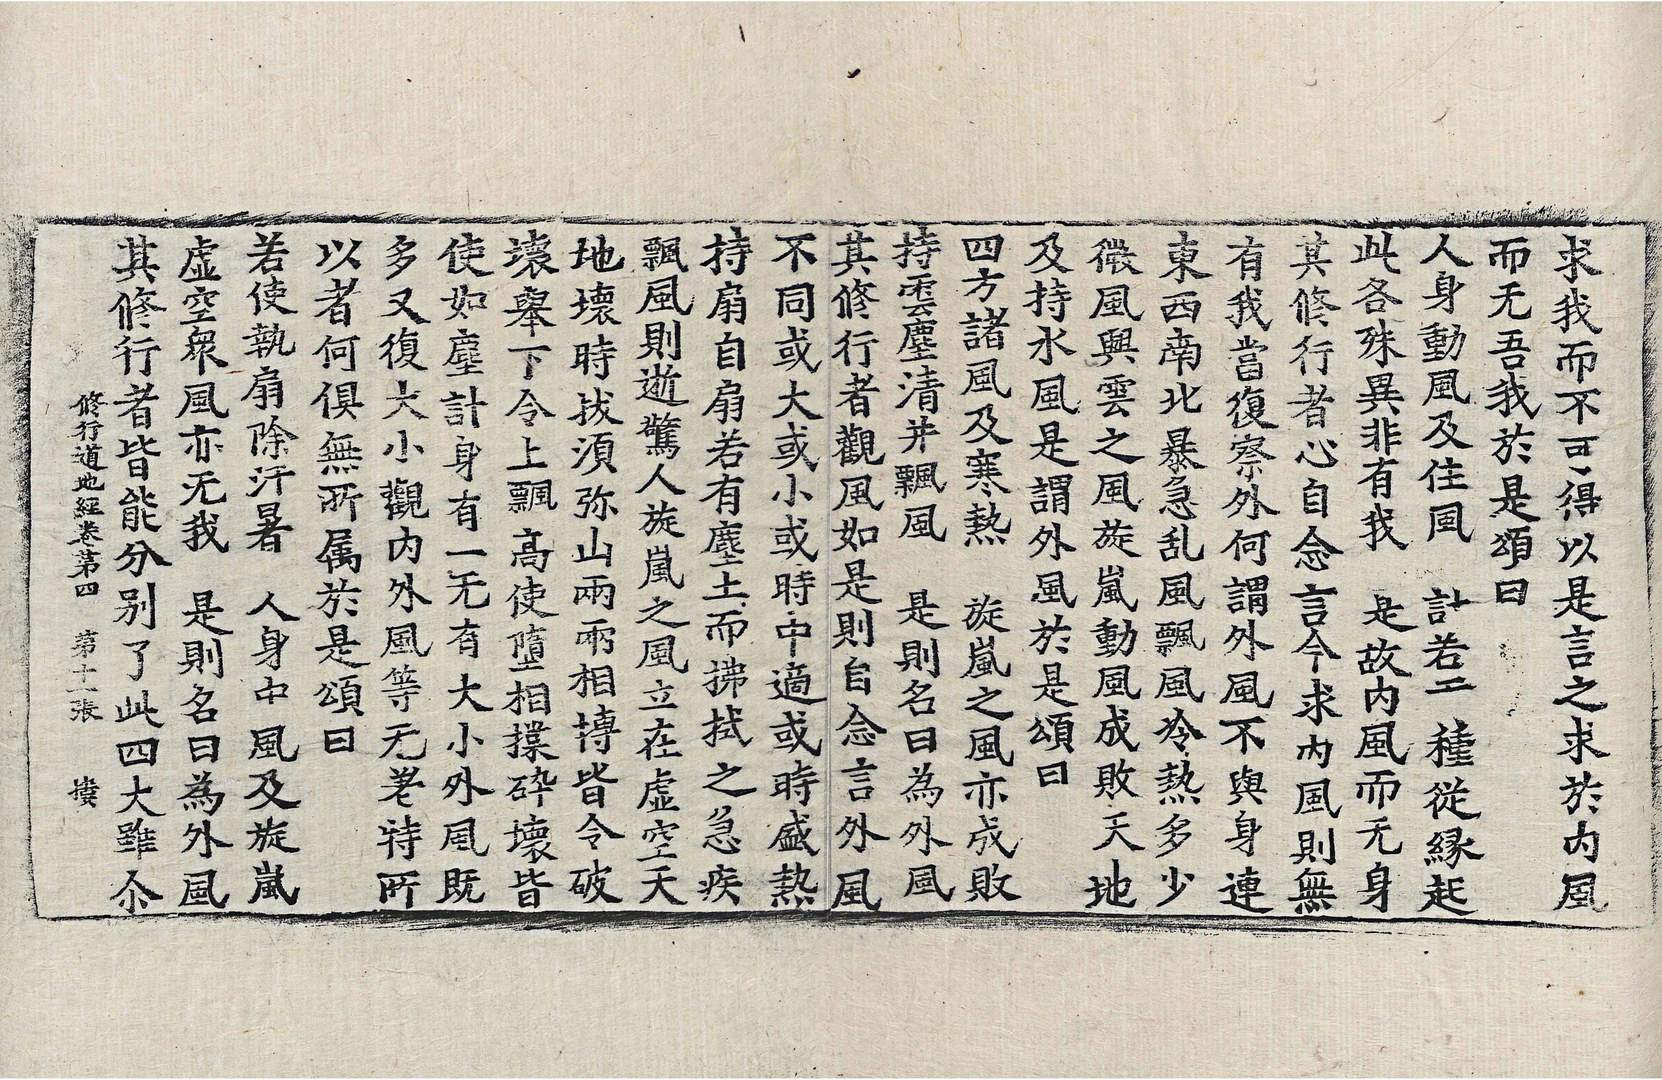 求我而不可得以是言之求於内風
而无吾我於是頌曰
人身動風及住風　計若二種從縁起
此各殊異非有我　是故内風而无身
其修行者心自念言今求内風則無
有我當復察外何謂外風不與身連
東西南北暴急乱風飄風冷熱多少
微風興雲之風旋嵐動風成敗天地
及持水風是謂外風於是頌曰
四方諸風及寒熱　旋嵐之風亦成敗
持雲塵清并飄風　是則名曰為外風
其修行者觀風如是則自念言外風
不同或大或小或時中適或時盛熱
持扇自扇若有塵土而拂拭之急疾
飄風則逝驚人旋嵐之風立在虛空天
地壞時拔須弥山兩兩相搏皆令破
壞舉下令上飄高使墮相撲碎壞皆
使如塵計身有一无有大小外風既
多又復大小觀内外風等无差特所
以者何俱無所属於是頌曰
若使執扇除汗暑　人身中風及旋嵐
虛空衆風亦无我　是則名曰為外風
其修行者皆能分別了此四大雖尒
修行道地經卷第四　第十二張